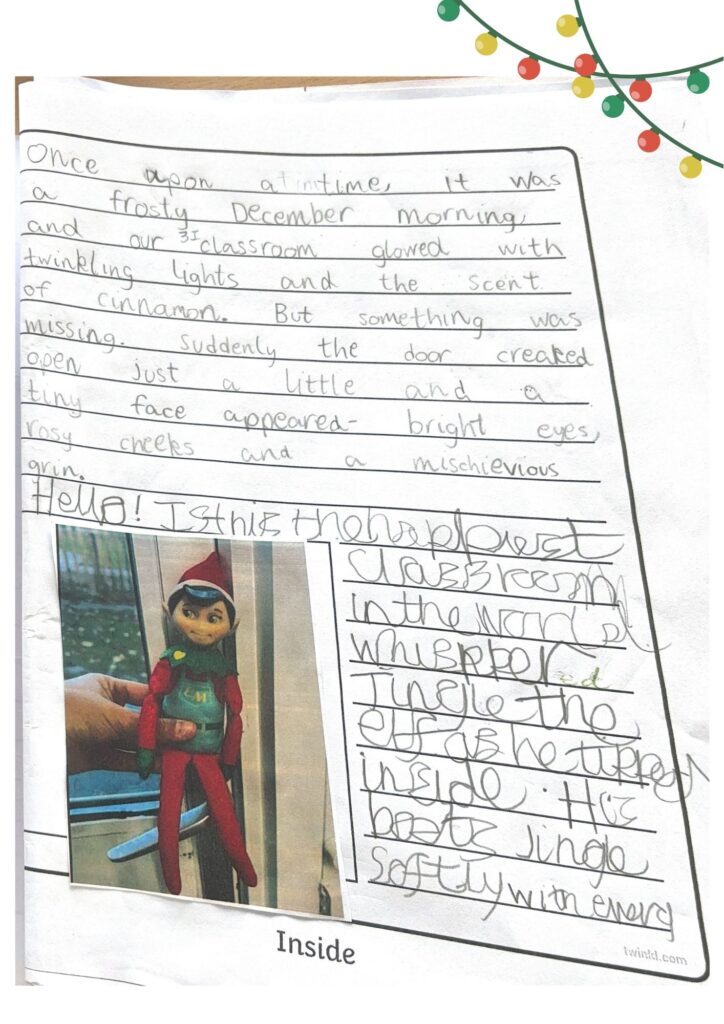 Once upon a time, it was
a frosty December morning,
and our 3I classroom glowed with
twinkling lights and the scent
of cinnamon. But something was
missing. Suddenly the door creaked
open just a little and a
tiny face appeared- bright eyes,
rosy cheeks and a mischievious
grin.
Hello! Is this the happiest
classroom
in the world
whispered
Jingle the
elf as he
inside. His
boots jingle
softly with every
Inside
twinkl.com